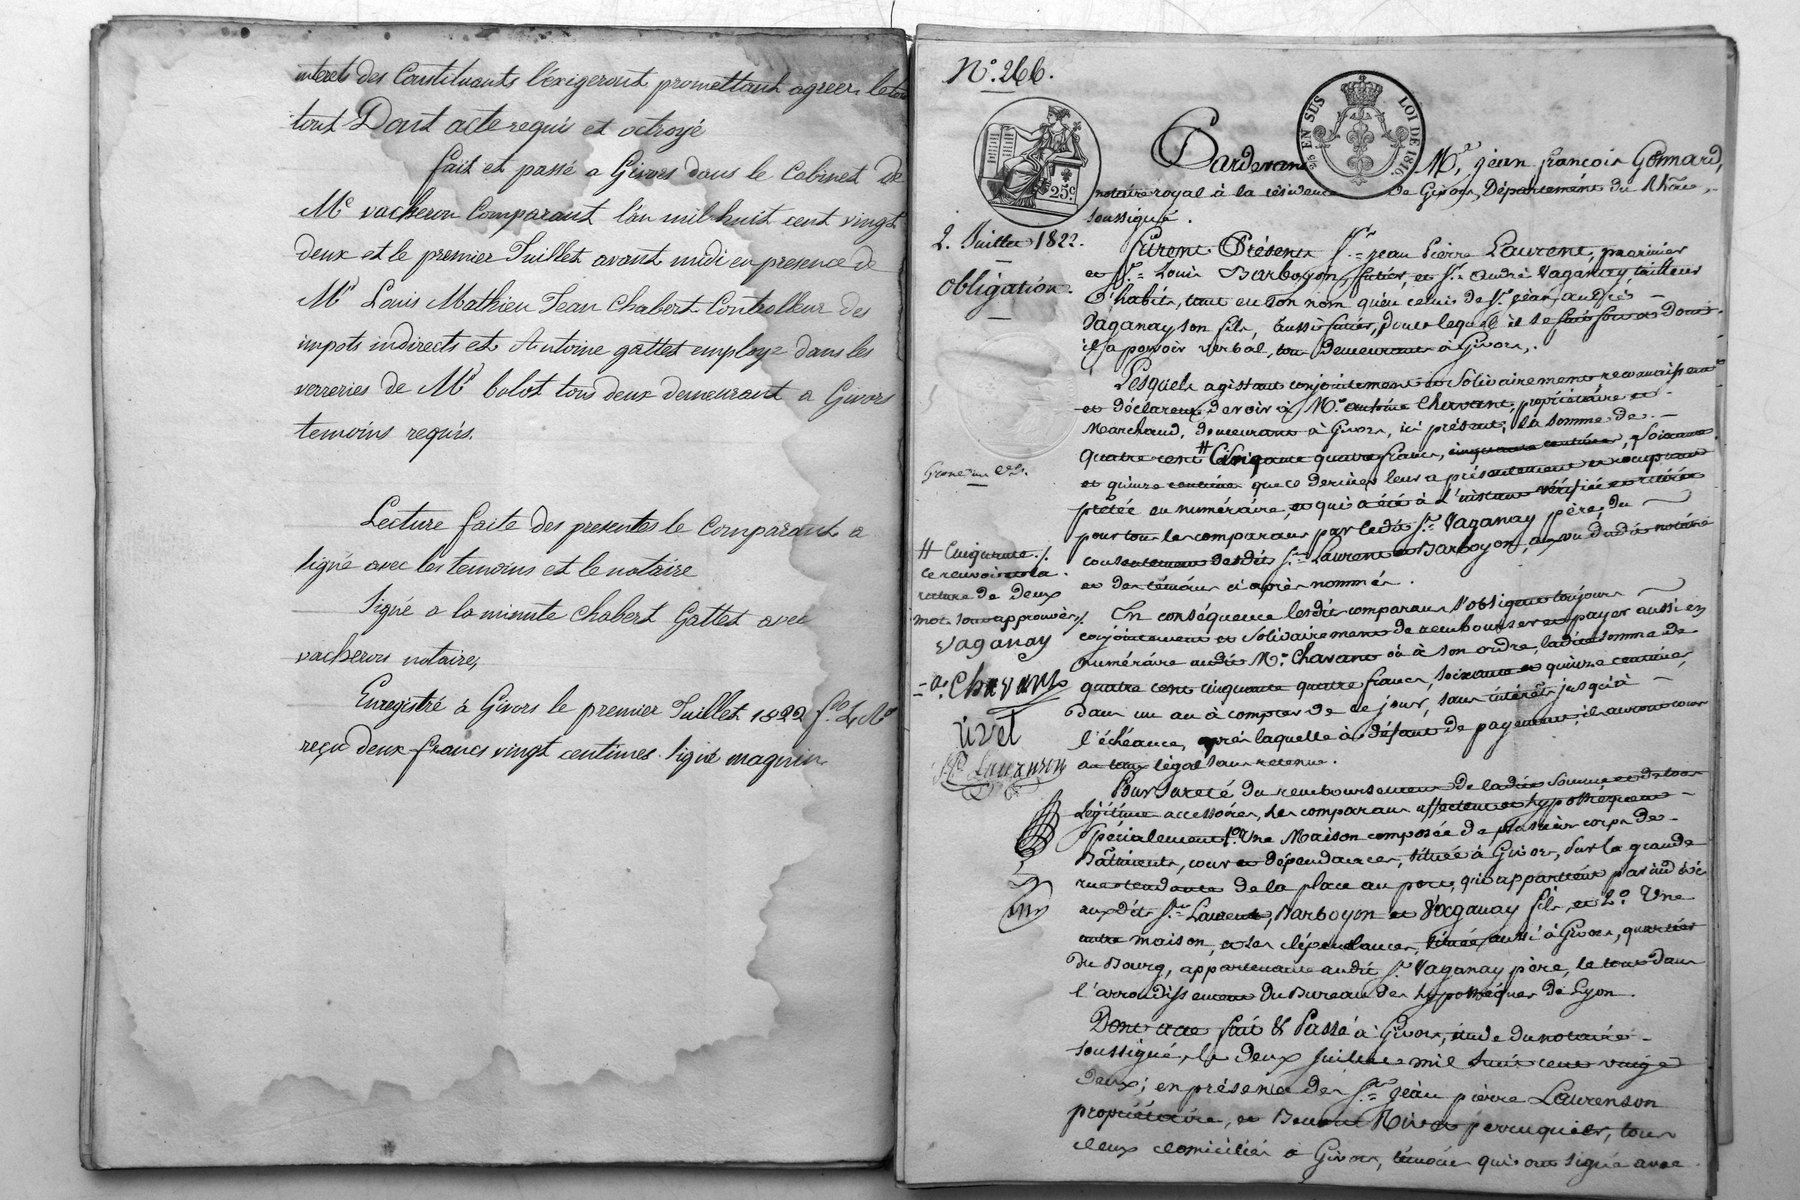 interet des Constituants l'exigeront promettant agreer le tout
tout Dont acte requi et octroyé
fait et passé a Givors dans le Cabinet de
Me vacheron Comparant l'an mil huit cent vingt
deux et le premier Juillet avant midi en presence de
Mrs Louis Mathieu Jean Chabert Controlleur des
impots indirects et Antoine gattet employe dans les
verreries de Mr bolot tous deux demeurant a Givors
temoins requis.
Lecture faite des presentes le Comparant a
signé avec les temoins et le notaire
Signé a la minute Chabert Gattet avec
vacheron notaire,
Enregistré a Givors le premier Juillet 1822 f°
reçu deux francs vingt centimes. signé magnin
N°. 266.
25 EN SUS LOI DE 1816
25c.
Pardevant Me. jean françois Gonnard,
notaire royal à la résidence de Givors, Département du Rhône,
soussigné.
2. Juillet 1822.
Obligation.
Furent Présents Sr. jean Pierre Laurent, marinier
et Sr. Louis Barboyon, futier, et Sr. andré Vaganay tailleur
d'habits, tant en son nom qu'en celui de Sr. jean andré
Vaganay son fils, aussi futier, pour lequel il se fait fort et dont
il a pouvoir verbal, tous Demeurants à Givors,.
Lesquels agissant conjointement et Solidairement reconnaissent
et déclarent devoir à Mr. antoine Chavant, propriétaire et
Marchand, demeurant à Givors, ici présent, la somme de
quatre cent # Cinquante quatre francs, soixante
et quinze centimes que ce dernier leur a présentement et
prêtée en numéraire, et qui a été à l'instant vérifiée et retirée
pour tous les comparans par ledit Sr. Vaganay père, du
consentement desdits Sr. Laurent et Barboyon, au vu dudit notaire
et des témoins ci après nommés.
Grosse
# Cinquante./.
ce renvoi et la
rature de deux
mots sont approuvés/.
Vaganay
a. Chavant
rivet
Jp. Laurenson
En conséquence lesdits comparans s'obligent toujours
conjointement et solidairement de rembourser et payer aussi en
numéraire audit Mr. Chavant où à son ordre, ladite somme de
quatre cent cinquante quatre francs, soixante et quinze centimes,
Dans un an à compter de ce jour, sans intérêts jusqu'à
l'échéance, après laquelle à défaut de payement, ils auront cours
au taux légal sans retenue.
Pour Sureté du remboursement de ladite somme et de tous
Légitimes accessoires, les comparans affectent et hypothéquent
Spécialement 1°. Une Maison composée de plusieurs corps de
Bâtiments, cour et dépendances, située à Givors, sur la grande
rue tendante de la place au port, qui appartient par indivis
auxdits Srs. Laurent, Barboyon et Vaganay fils, et 2°. Une
autre maison, et ses dépendances, située aussi à Givors, quartier
du Bourg, appartenant audit Sr. Vaganay père, le tout dans
l'arrondissement du Bureau des hypothèques de Lyon.
Dont acte fait & Passé à Givors, étude du notaire
soussigné, le deux juillet mil huit cent vingt
deux; en présence des Srs. jean pierre Laurenson
propriétaire, et Rivet perruquier, tous
deux domiciliés à Givors, témoins qui ont signé avec